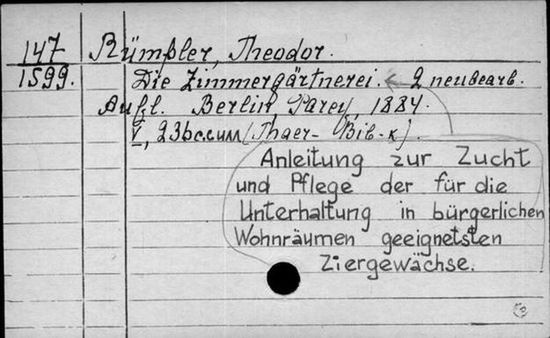 147
1599.
Rümpler, Theodor.
Die Zimmergärtnerei. 2 neubearb.
Aufl. Berlin, Parey, 1884.
V, 236 с.с илл (Thaer-Bib-k).
Anleitung zur Zucht
und Pflege der für die
Unterhaltung in bürgerlichen
Wohnräumen geeignetsten
Ziergewächse.